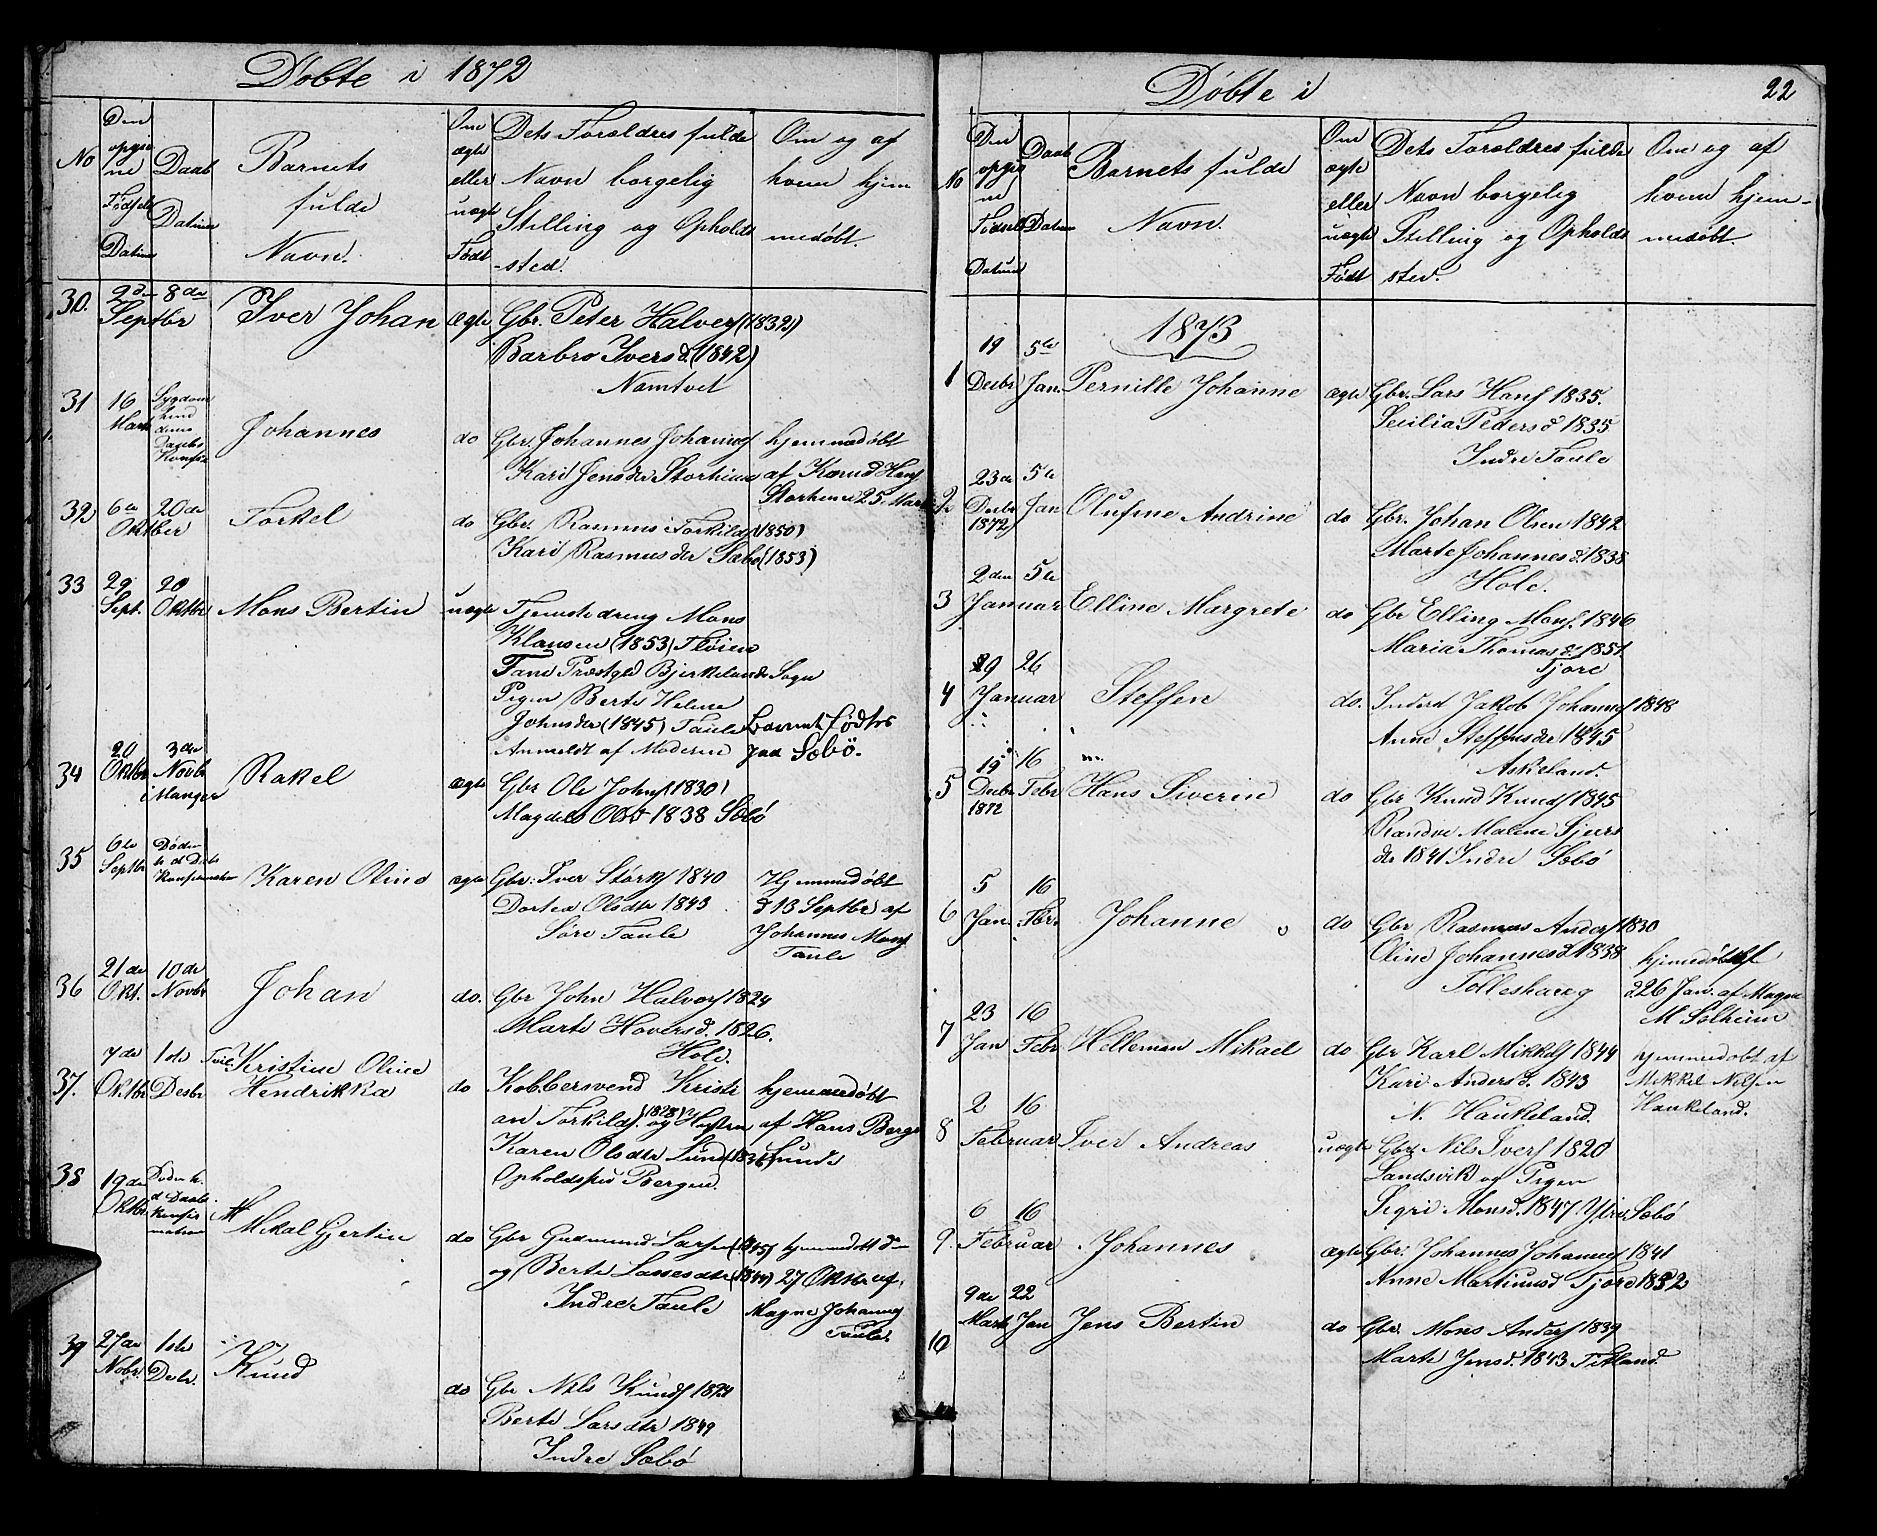 Døbte i 1872
No
Den opgivne Fødsels Datum
Daab Datum
Barnets fulde Navn.
Om ægte eller uægte Født
Dets Forældres fulde Navn borgelig Stilling og Opholdssted.
Om og af hvem hjemmedøbt.
30. 2den 8de
Septbr Iver Johan ægte Gbr. Peter Halvers (1832)
Barbro Ivers d. (1842)
Namtvet
31 16 Marts Sygdom hind Daabs Johannes do Gbr. Johannes Johannes hjemmedøbt
Kari Jensdr Storheim af Knud Hans
Storheim 25 Mart
32 6te 20de
Oktber Torkel do Gbr. Rasmus Torkilds (1850)
Kari Rasmusdr Sæbø (1853)
33 29 20
Sept. Oktbr Mons Bertin uægte Tjenestedreng Mons
Klausen (1853) Fløien
Fane Præstgld Bjerkelands Sogn
Pigen Berte Helene
Johnsdr (1845) Taule Barnet født
Anmeldt af Moderen paa Sæbø.
34 20 3de
Oktbr Novbr i Manger Rakel ægte Gbr Ole Johns (1830)
Magdel Olsd 1838 Sæbø
35 6te Septbr Døden h d Daabs Konfirmation Karen Oline ægte Gbr: Iver Størks 1840 Hjemmedøbt
Dortea Olsdtr 1843 d 13 Septbr af
Søre Taule Johannes Mons
Taule
36 21de 10de
Okt. Novbr Johan do. Gbr John Halvors 1824
Marte Haversd. 1826.
Hole.
37. 7de 1ste Kristine Oline
Oktbr Desbr Hendrikka do Kobbersvend Kristi hjemmedøbt
an Torkilds. (1828) og Hustru af Hans Berge
Karen Olsdtr Lund (1836) Lunde
Opholdsted Bergen.
38 19de Oktbr Døden h. d Daabs konfirmation Mikal Gjertin do Gbr Gudmund Larsen (1845) hjemmedøbt den
og Berte Lassesdtr (1844) 27 Oktbr af
Indre Taule Magne Johannes
Taule.
39 27de 1ste
Nobr. Debr. Knud do Gbr Nils Knuds 1824
Berte Larsdtr 1849
Indre Sæbø
Døbte i 22
No
Den opgivne Fødsels Datum
Daab Datum
Barnets fulde Navn.
Om ægte eller uægte Født
Dets Forældres fulde Navn borgelig Stilling og Opholdssted.
Om og af hvem hjemmedøbt.
1873
1 19 5te
Desbr Jan. Pernille Johanne ægte Gbr. Lars Hans 1835.
Secilia Pedersd 1835
Indre Taule
2 23de 5te
Desbr 1872 Jan Olufine Andrine do Gbr. Johan Olsen 1842
Marte Johannesd. 1838
Hole.
3 2den 5te
Januar Elline Margrete do Gbr Elling Mons. 1846
Maria Thomasd. 1851.
Tjore
4 29 26
Januar Steffen do. Inderst Jakob Johannes 1848
Anne Steffensdr 1845
Askeland.
5 15 16
Desbr 1872 Febr Hans Siverin do Gbr Knud Knuds 1845
Randve Malene Sjurs
dr 1841 Indre Sæbø
6 5 16
Jan Febr. Johanne do Gbr Rasmus Anders 1830
Oline Johannesd. 1838 hjemedøbt
Tolleshaug d. 26 Jan. af Magne
M Solheim
7 23 16
Jan Febr Helleman Mikael do Gbr Karl Mikkels 1844 hjemmedøbt af
Kari Andersd. 1843 Mikkel Nilsen
N. Haukeland. Haukeland.
8 2 16
Februar Iver Andreas uægte Gbr. Nils Ivers 1820
Landsvik og Pigen
Sigri Monsd. 1847 Ytre Sæbø
9. 6 16
Februar Johannes ægte Gbr: Johannes Johannes 1841
Anne Martinusd Tjore 1832
10 9de 22
Marts Jan Jens Bertin do Gbr. Mons Anders 1839
Marte Jensd. 1843 Titland.